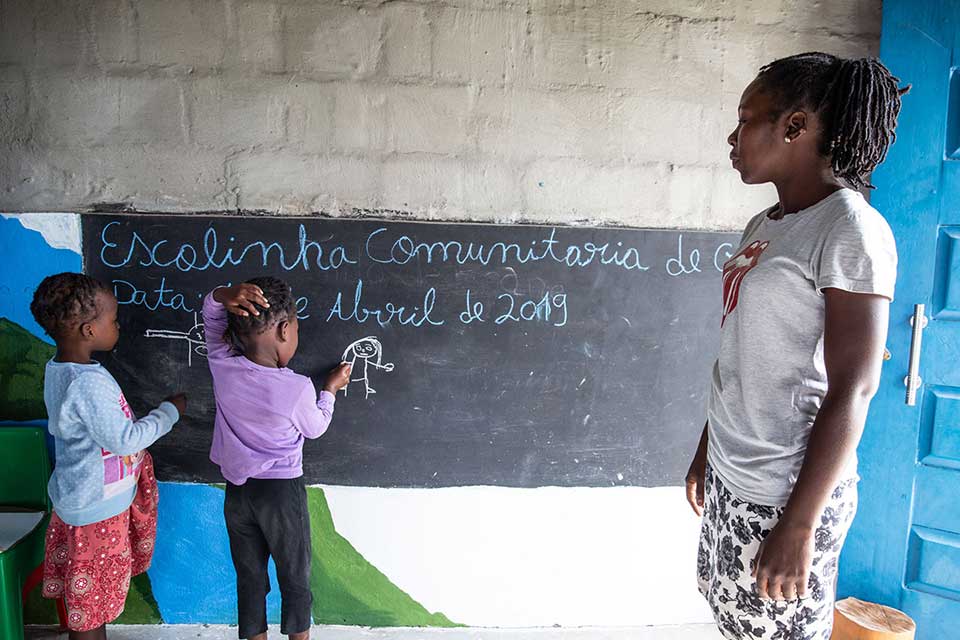 Escolinha Comunitaria de
Data: de Abril de 2019